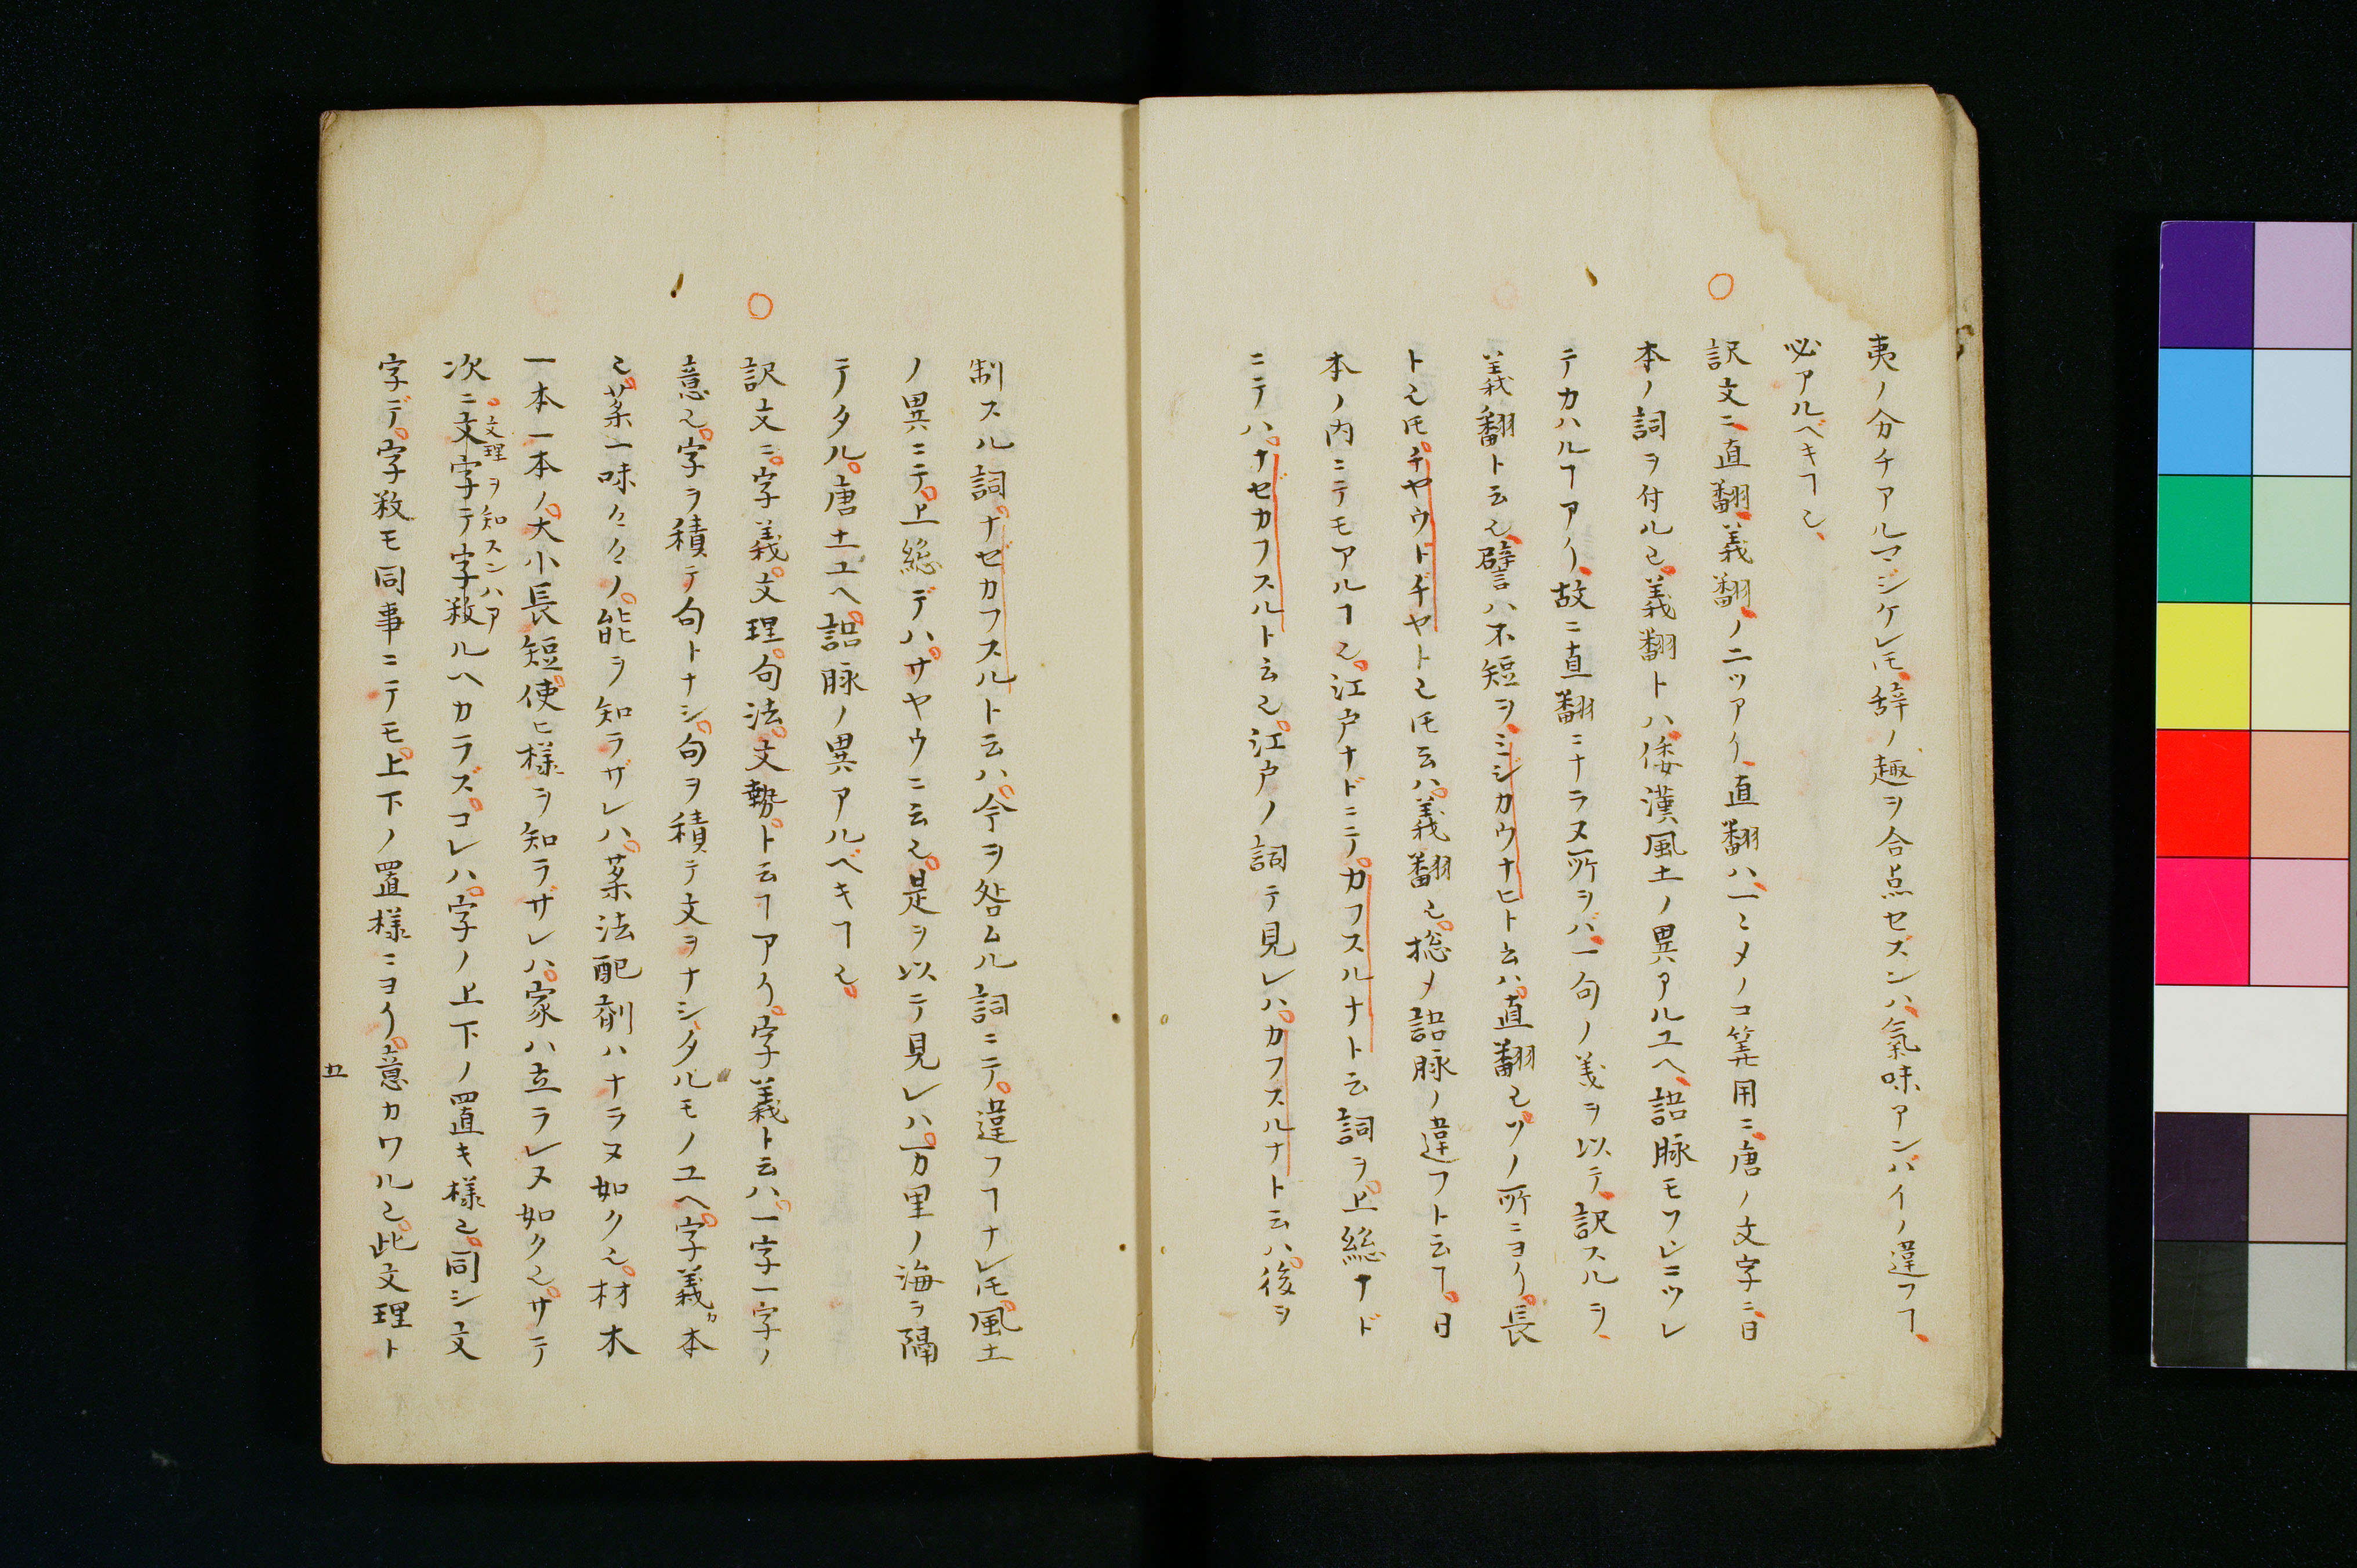 夷ノ分チアルマジケレ𪜈辞ノ趣ヲ合点セズンハ氣味アンバイノ違フヿ
必アルベキヿ也
訳文ニ直翻義翻ノ二ツアリ直翻ハ一ミメノコ筭用ニ唐ノ文字ニ日
本ノ詞ヲ付ル也義翻トハ倭漢風土ノ異アルユヘ語脉モソレニツレ
テカハルヿアリ故ニ直翻ニナラヌ所ヲバ一句ノ義ヲ以テ訳スルヲ
義翻ト云也譬ハ不短ヲミジカウナヒト云ハ直翻也ソノ所ニヨリ長
ト也𪜈チヤウドヂヤト也𪜈云ハ義翻也揔メ語脉ノ違フト云ヿ日
本ノ内ニテモアルヿ也江戸ナドニテカフスルナト云詞ヲ上総ナド
ニテハナセカフスルト云也江戸ノ詞テ見レハカフスルナト云ハ後ヲ
制スル詞ナゼカフスルト云ハ今ヲ咎ムル詞ニテ違フヿナレ𪜈風土
ノ異ニテ上総デハサヤウニ云也是ヲ以テ見レハ万里ノ海ヲ隔
テタル唐土ユヘ語脉ノ異アルベキヿ也
訳文ニ字義文理句法文勢ト云ヿアリ字義ト云ハ一字一字ノ
意也字ヲ積テ句トナシ句ヲ積テ文ヲナシタルモノユヘ字義カ本
也茶一味々々ノ能ヲ知ラザレハ茶法配剤ハナラヌ如ク也材木
一本一本ノ大小長短使ヒ様ヲ知ラザレハ家ハ立ラレヌ如ク也サテ
次ニ文理ヲ知スンハア
文字テ字数ルヘカラズコレハ字ノ上下ノ置キ様也同シ文
字デ字数モ同事ニテモ上下ノ置様ニヨリ意カワル也此文理ト
五